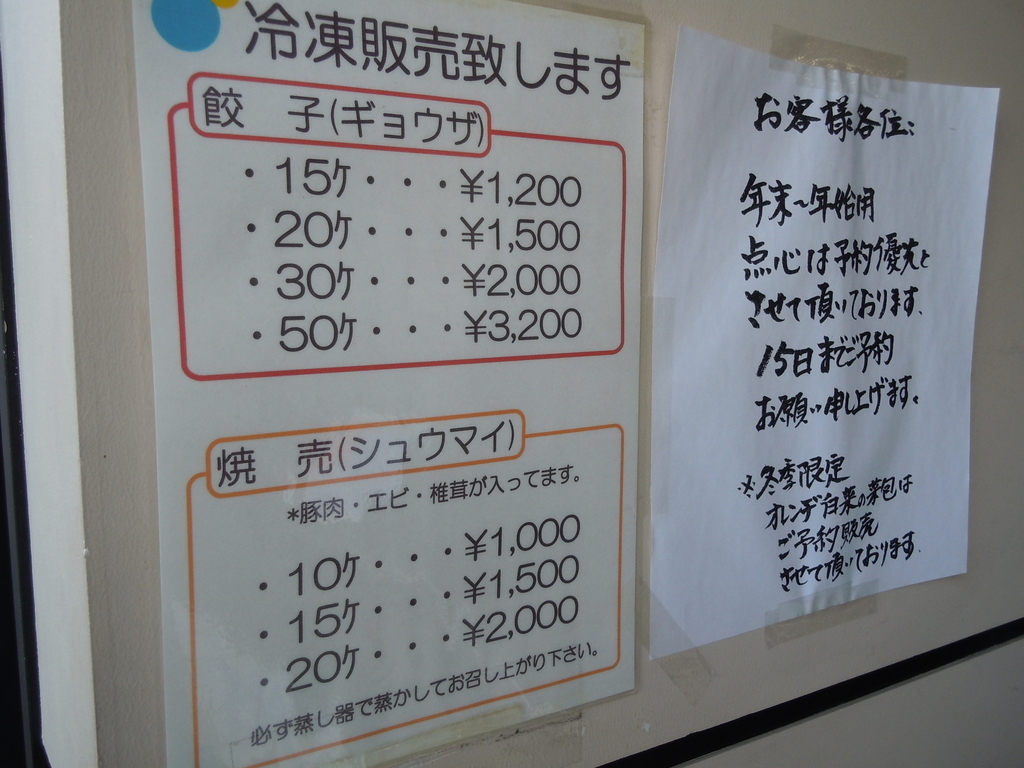 冷凍販売致します
餃　子(ギョウザ)
・15ケ・・・¥1,200
・20ケ・・・¥1,500
・30ケ・・・¥2,000
・50ケ・・・¥3,200
焼　売(シュウマイ)
*豚肉・エビ・椎茸が入ってます。
・10ケ・・・¥1,000
・15ケ・・・¥1,500
・20ケ・・・¥2,000
必ず蒸し器で蒸かしてお召し上がり下さい。
お客様各位:
年末〜年始用
点心は予約優先と
させて頂いております.
15日までご予約
お願い申し上げます。
※冬季限定
オレンヂ白菜の菜包は
ご予約販売
させて頂いております.